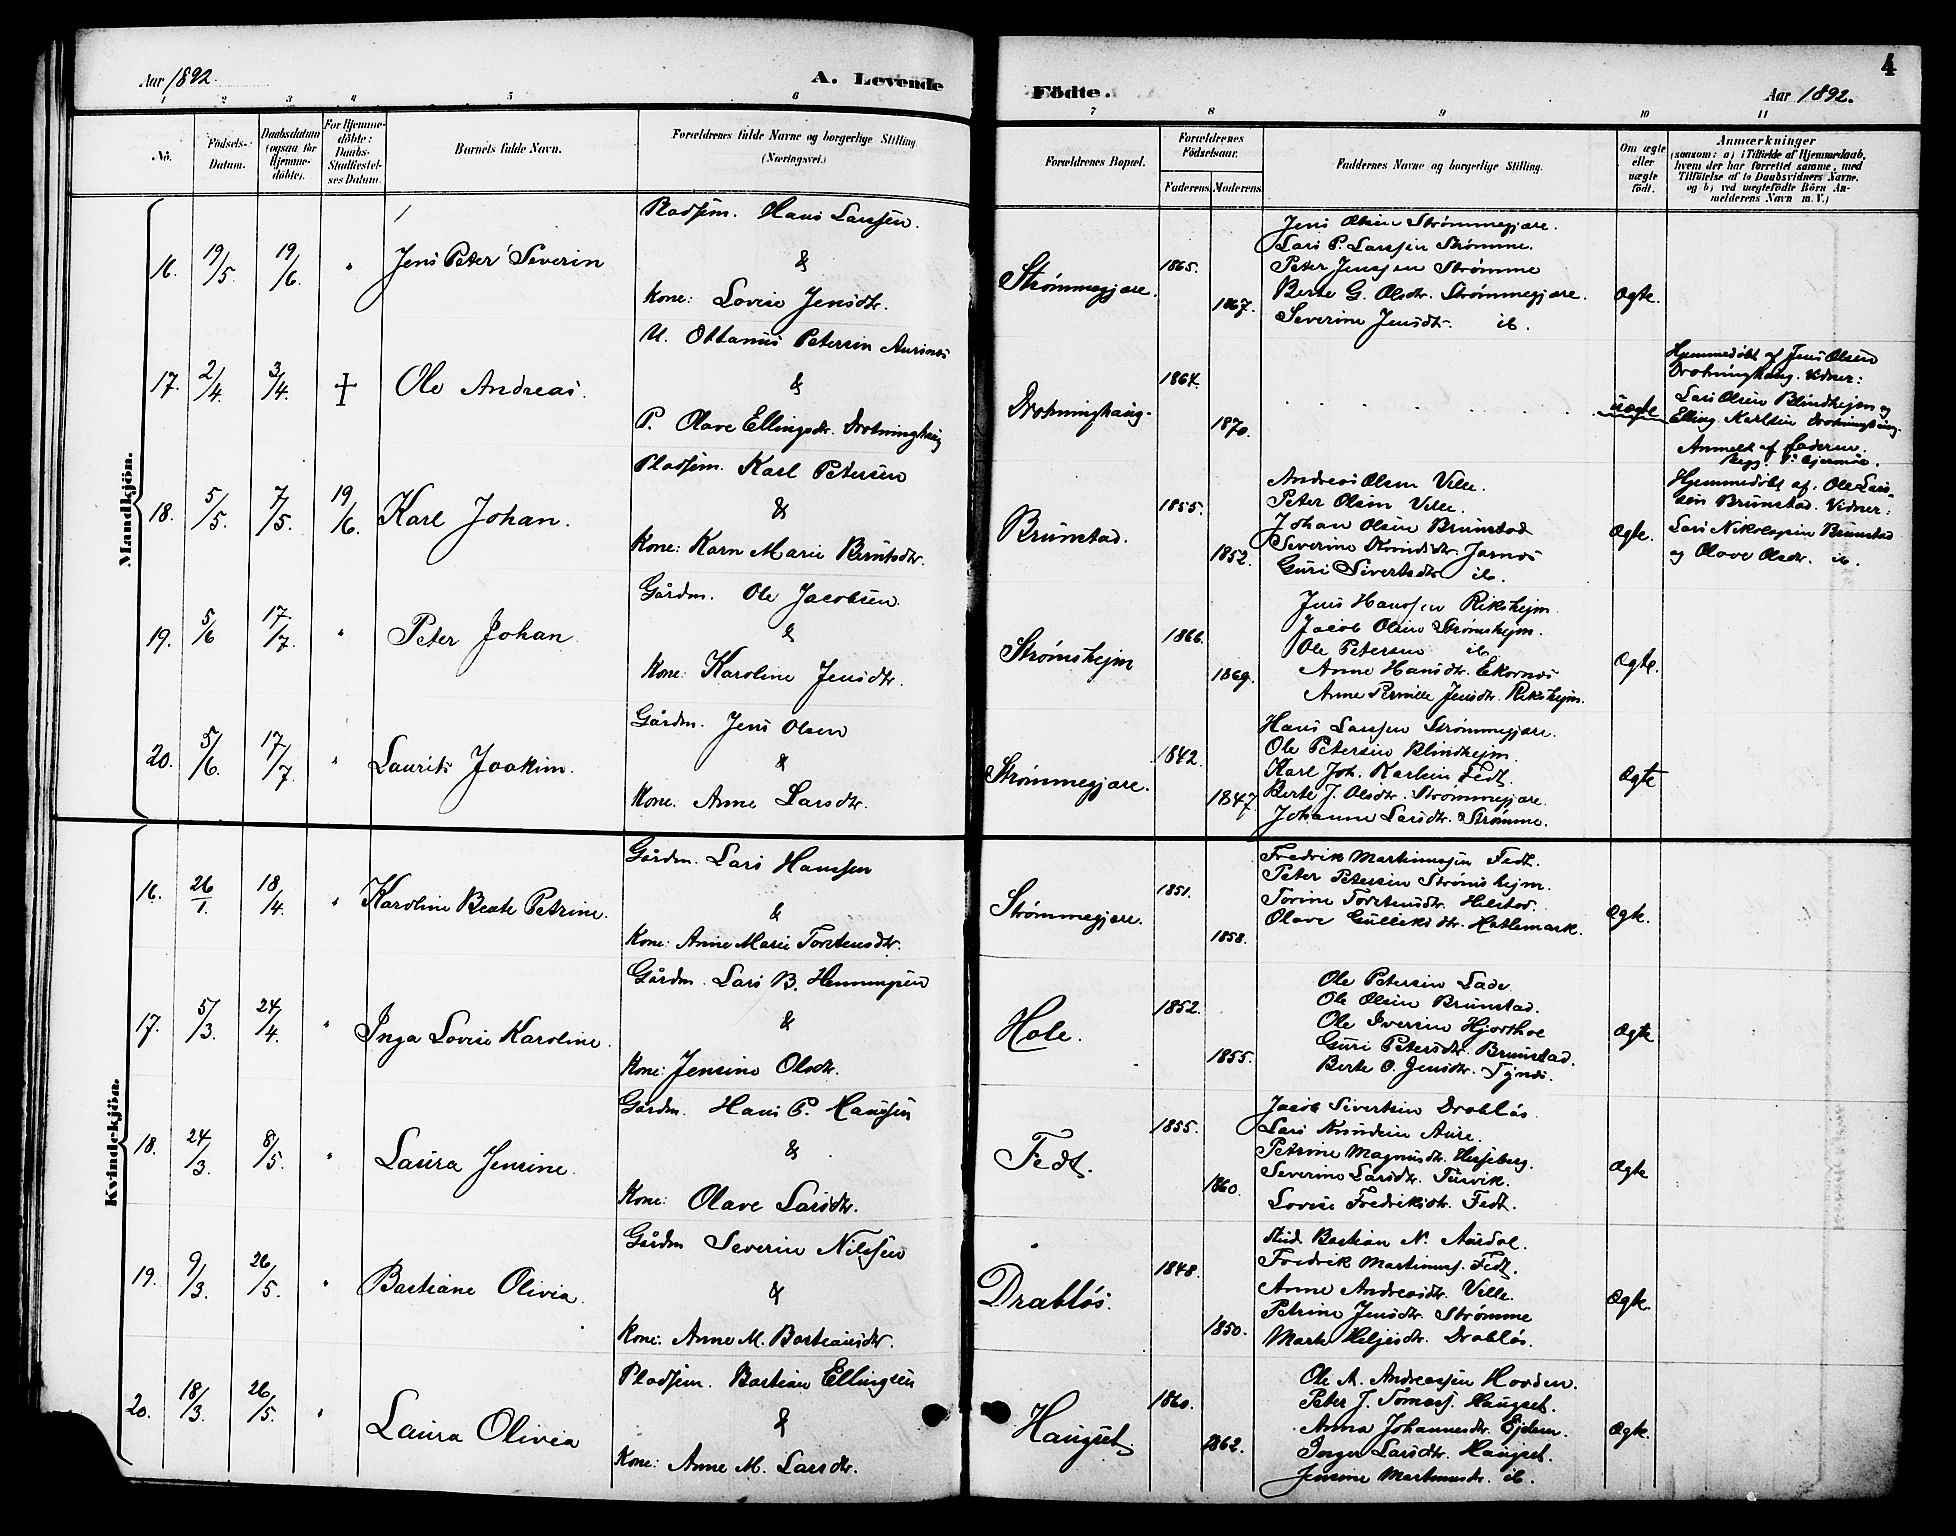 Aar 1892.
A. Levende
Födte.
Aar 1892.
4
1 2 3 4 5 6 7 8 9 10 11
No.
Födsels-Datum.
Daabsdatum (ogsaa for Hjemme-döbte).
For Hjemme-döbte: Daabs-Stadfæstel-ses Datum.
Barnets fulde Navn.
Forældrenes fulde Navne og borgerlige Stilling (Næringsvei.)
Forældrenes Bopæl.
Forældrenes Födselsaar.
Faderens. Moderens.
Faddernes Navne og borgerlige Stilling.
Om ægte eller uægte födt.
Anmærkninger
(saasom: a) i Tilfælde af Hjemmedaab,
hvem der har forrettet samme, med
Tilföielse af to Daabsvidners Navne,
og b) ved uægtefödte Börn An-
melderens Navn m. V.)
Mandkjön.
16. 19/5 19/6 " Jens Peter Severin
Pladsm. Hans Larssen
&
Kone: Lovise Jensdtr.
Strømmegjære. 1865. 1867.
Jens Olsen Strømmegjære.
Lars P. Larssen Strømme.
Peter Jenssen Strømme
Berte G. Olsdtr. Strømmegjære.
Severine Jensdtr. ib.
Ægte.
17. 2/4. 3/4. + Ole Andreas.
U. Ottanius Petersen Aursnes
&
P. Olave Ellingsdtr. Drotninghaug
Drotninghaug. 1864. 1870.
uægte
Hjemmedøbt af Jens Olsen
Drotninghaug. Vidner:
Lars Olsen Blindhejm og
Elling Karlsen Drotninghaug.
Anmeldt af Faderen.
18. 5/5. 7/5. 19/6. Karl Johan.
Pladsm. Karl Petersen
&
Kone: Karn Marie Berntsdtr.
Brunstad. 1855. 1852.
Andreas Olsen Velle.
Peter Olsen Velle.
Johan Olsen Brunstad
Severine Knudsdtr. Jarnes
Guri Sivertsdtr. ib.
Ægte.
Hjemmedøbt af. Ole Lars-
sen Brunstad. Vidner:
Lars Nikolaysen Brunstad
og Olave Olsdtr. ib.
19. 5/6 17/7. " Peter Johan
Gårdm. Ole Jacobsen
&
Kone: Karoline Jensdtr.
Strømshejm 1866. 1869.
Jens Hanssen Rikshejm
Jacob Olsen Strømshejm.
Ole Petersen ib.
Anne Hansdtr. Ekornes
Anne Pernille Jensdtr. Rikshejm.
Ægte.
20. 5/6. 17/7 " Laurits Joakim.
Gårdm. Jens Olsen
&
Kone. Anne Larsdtr.
Strømmegjære. 1842. 1847
Hans Larssen Strømmegjære.
Ole Petersen Blindhejm.
Karl Joh. Karlsen Fedt.
Berte J. Olsdtr. Strømmegjære.
Johanne Larsdtr. Strømme.
Ægte
Kvindekjön.
16. 26/1. 18/4. " Karoline Beate Petrine.
Gårdm. Lars Hanssen
&
Kone: Anne Marie Torstensdtr.
Strømmegjære. 1851. 1858.
Fredrik Martinussen Fedt.
Peter Petersen Strømshejm.
Torine Torstensdtr. Helstad.
Olave Gulleksdtr. Hatlemark.
Ægte.
17. 5/3. 24/4. " Inga Lovise Karoline.
Gårdm. Lars B. Hennungsen
&
Kone: Jensine Olsdtr.
Hole. 1852. 1855.
Ole Petersen Lade.
Ole Olsen Brunstad.
Ole Iversen Hjorthol
Guri Petersdtr. Brunstad.
Berte O. Jensdtr. Tynes.
Ægte
18. 24/3. 8/5. " Laura Jensine.
Gårdm. Hans P. Hanssen
&
Kone: Olave Larsdtr.
Fedt. 1855. 1860.
Jacob Sivertsen Drabløs.
Lars Knudsen Aure.
Petrine Magnusdtr. Herjeberg.
Severine Larsdtr. Tusvik.
Lovise Fredriksdtr. Fedt.
Ægte
19. 9/3. 26/5. " Bastiane Olivia.
Gårdm Severin Nilssen
&
Kone: Anne M. Bastiansdtr.
Drabløs. 1848. 1850.
Stud. Bastian N. Aurdal.
Fredrik Martinuss. Fedt.
Anne Andreasdtr. Velle.
Petrine Jensdtr. Strømme
Marte Heljesdtr. Drabløs.
Ægte.
20. 18/3. 26/5. " Laura Olivia
Pladsm. Bastian Ellingsen
&
Kone: Anne M. Larsdtr.
Haugset 1860. 1862.
Ole A. Andreassen Hovden.
Peter J. Tomass. Haugset.
Anna Johannesdtr. Ejdem.
Inger Larsdtr. Haugset.
Jensine Martinusdtr. ib.
Ægte.